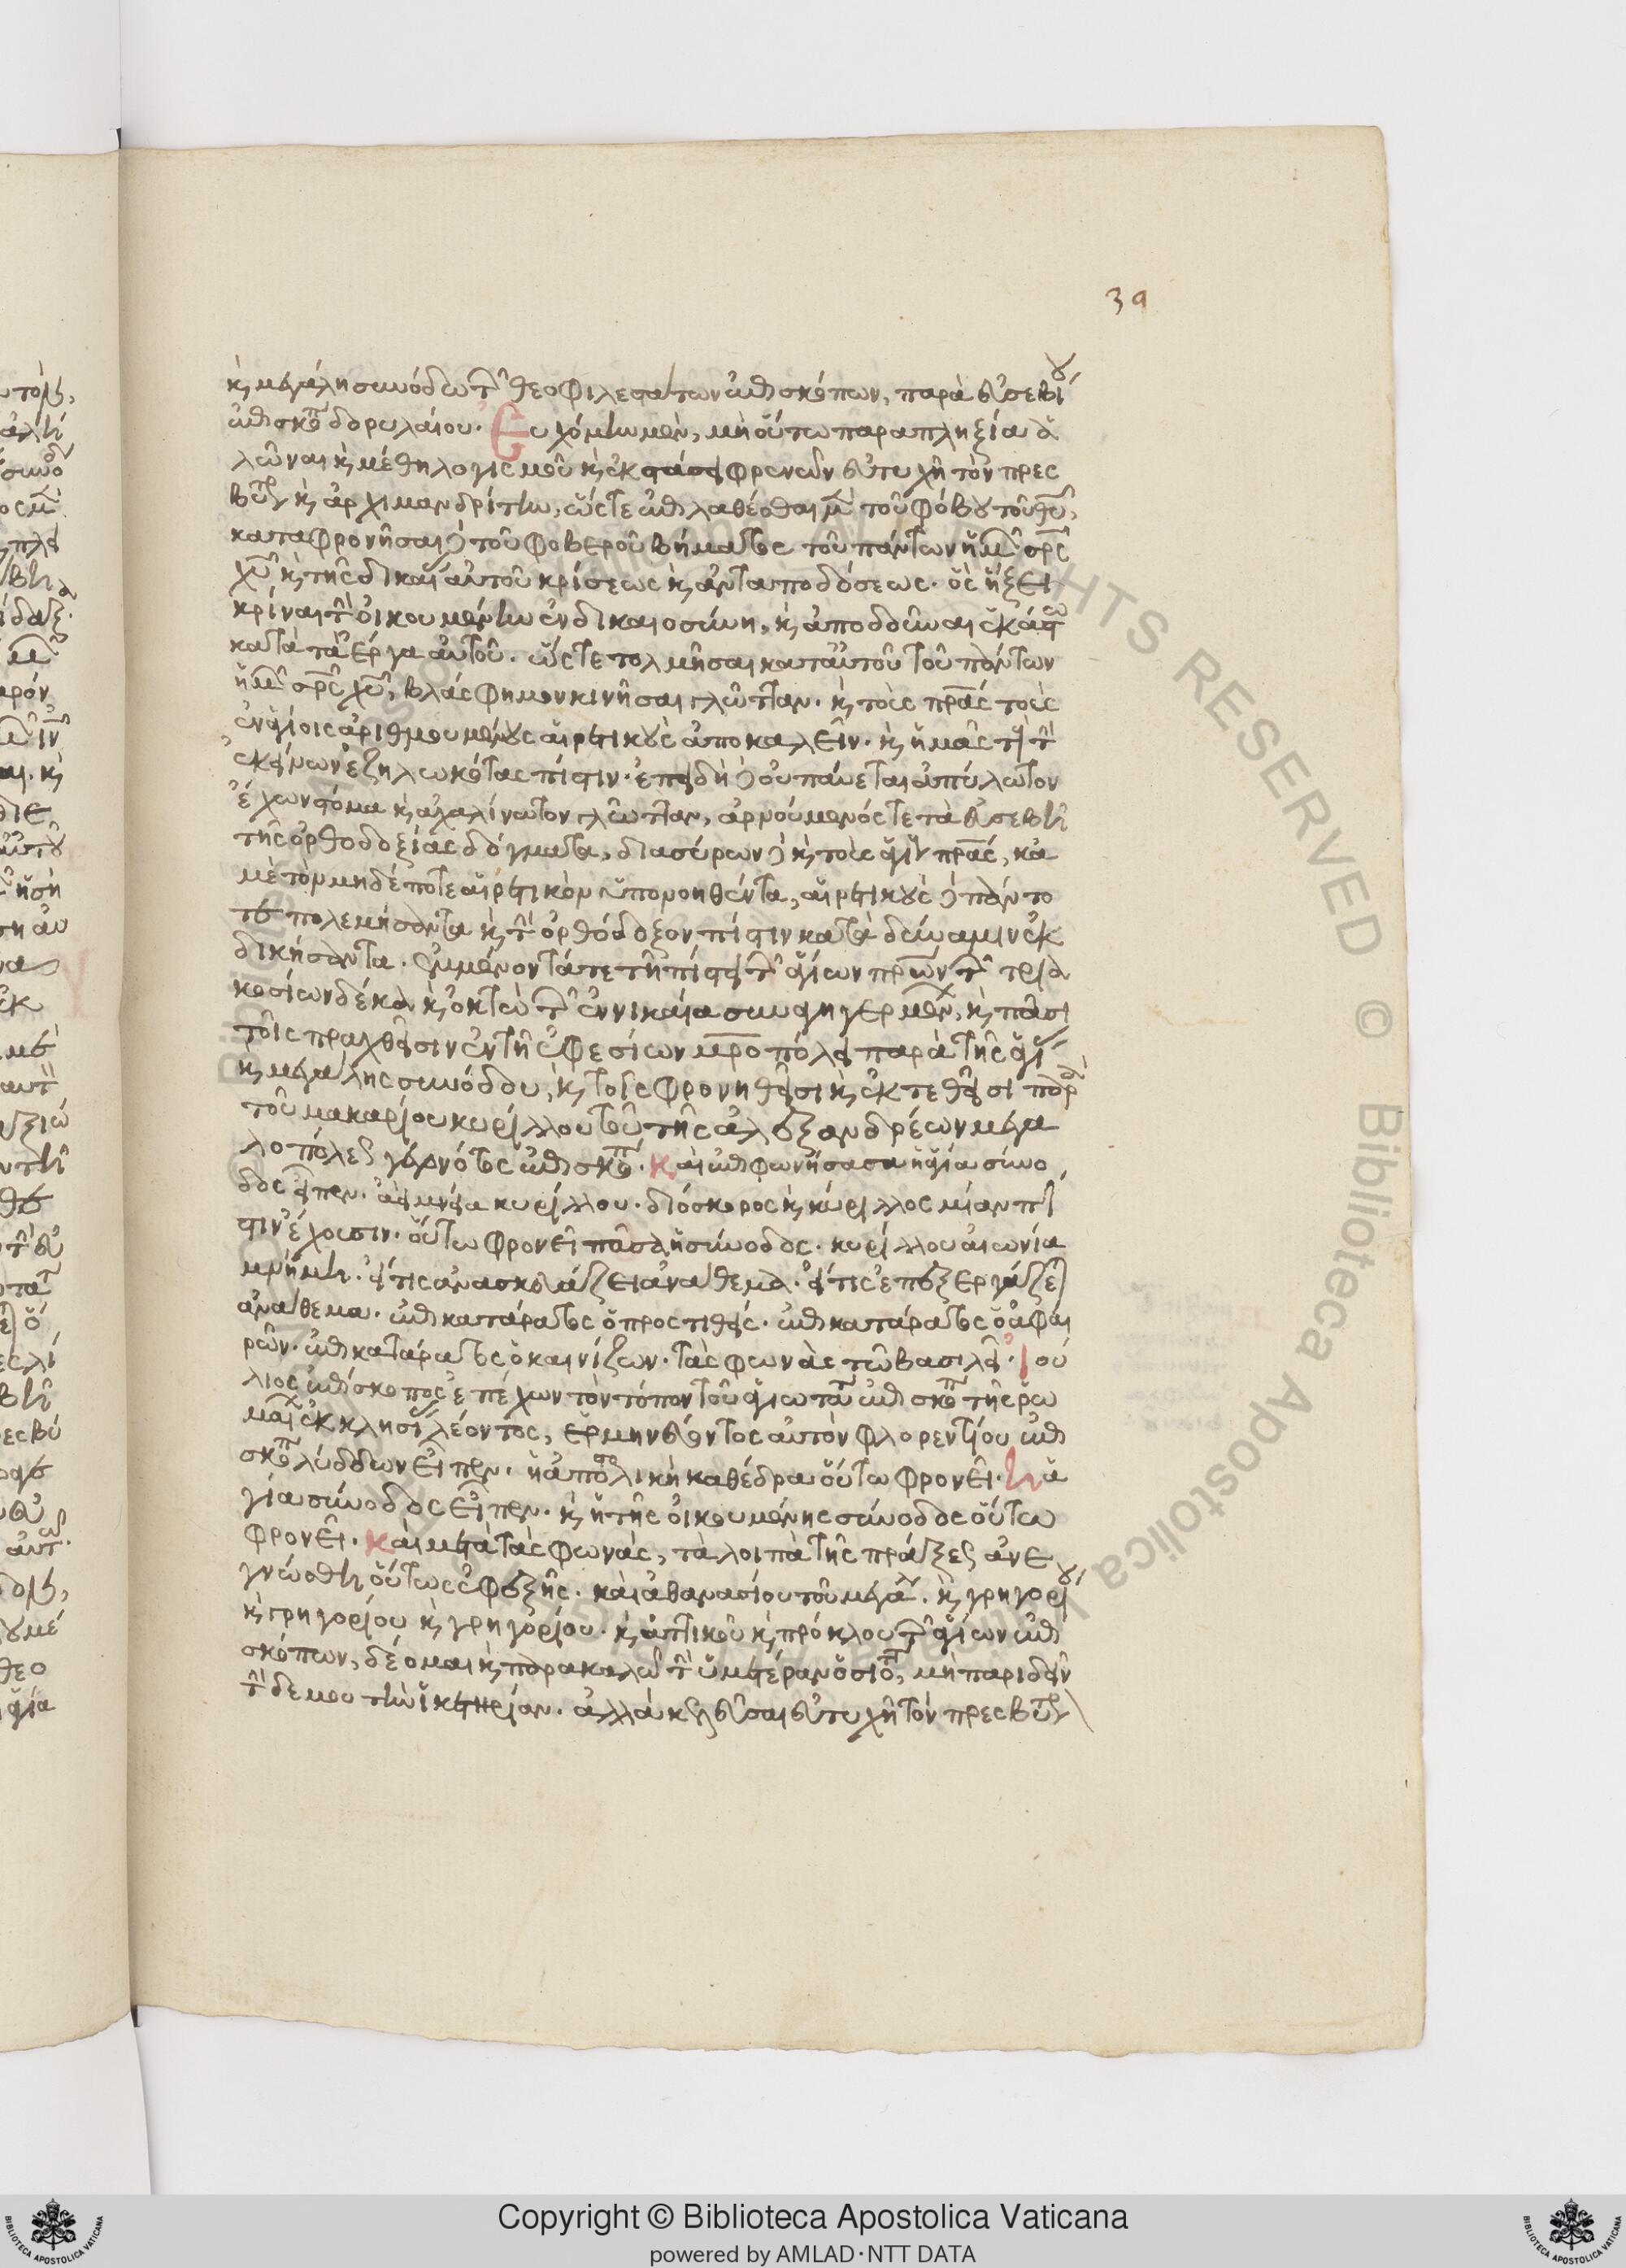 39
κ μεγάλη συνόδω τ θεοφιλεστάτων ἐπισκόπων, παρὰ εὐσεβίου
ἐπισκόπ δορυλαίου. Εὐχόμην μὲν, μὴ οὕτω παραπληξία ἁ
λῶναι κ μέθη λογισμοῦ κ ἐκστάσει φρενῶν εὐτυχῆ τὸν πρες
βύτ κ ἀρχιμανδρίτην, ὥστε ἐπιλαθέσθαι μ τοῦ φόβου τοῦ θυ,
καταφρονῆσαι δὲ τοῦ φοβεροῦ βήματος τοῦ πάντων ἡμ σρς
χυ κ τῆς δικαί αὐτοῦ κρίσεως κ ἀνταποδόσεως. ὃς ἥξει
κρίναι τ οἰκουμένην ἐν δικαιοσύνη, κ ἀποδοῦναι ἑκάστω
κατὰ τὰ ἔργα αὐτοῦ. ὥστε τολμῆσαι κατ' αὐτοῦ τοῦ πάντων
ἡμ σρς χυ, βλάσφημον κινῆσαι γλῶτταν. κ τοὺς πρας τοὺς
ἐν ἁγίοις ἀριθμουμένους αἱρετικοὺς ἀποκαλεῖν. κ ἡμᾶς τ τ
ἐκείνων ἐζηλωκότας πίστιν. ἐπειδὴ δὲ οὐ παύεται ἀπύλωτον
ἔχων στόμα κ ἀχαλίνωτον γλῶτταν, ἀρνούμενός τε τὰ εὐσεβῆ
τῆς ὀρθοδοξίας δόγματα, διασύρων δὲ κ τοὺς ἁγίους πρας, κἀ
μὲ τὸν μηδέποτε αἱρετικὸν ὑπονοηθέντα, αἱρετικοὺς δὲ πάντο
τε πολεμήσαντα κ τ ὀρθόδοξον πίστιν κατὰ δύναμιν ἐκ
δικήσαντα. ἐμμένοντά τε τῆ πίστει τ ἁγίων πρων τ τρια
κοσίων δέκα κ ὀκτὼ τ ἐν νικαία συνηγερμένων, κ πᾶσι
τοῖς πραχθεῖσιν ἐν τῆ ἐφεσίων μροπόλει παρὰ τῆς ἁγί
κ μεγάλης συνόδου, κ τοῖς φρονηθεῖσι κ ἐκτεθεῖσι παρ
τοῦ μακαρίου κυρίλλου τοῦ τῆς ἀλεξανδρέων μεγα
λοπόλεως γεγονότος ἐπισκόπ. καὶ ἐπιφωνήσασα ἡ ἁγία σύνο
δος εἶπεν. ἀειμνήστα κυρίλλου. διόσκορος κ κύριλλος μίαν πί
στιν ἔχουσιν. οὕτω φρονεῖ πᾶσα ἡ σύνοδος. κυρίλλου αἰωνία
μνήμη. εἴ τις ἀνασκευάζει ἀνάθεμα. εἴ τις ἐπεξεργάζεται
ἀνάθεμα. ἐπικατάρατος ὁ προστιθείς. ἐπικατάρατος ὁ ἀφαι
ρῶν. ἐπικατάρατος ὁ καινίζων. τὰς φωνὰς τῶ βασιλεῖ. Ἰού
λιος ἐπίσκοπος ἐπέχων τὸν τόπον τοῦ ἁγιωτάτ ἐπισκόπ τῆς ῥω
μαί ἐκκλησί λέοντος, ἑρμηνεύοντος αὐτὸν φλορεντίου ἐπι
σκόπ λύδδων εἶπεν. ἡ ἀποστολικὴ καθέδρα οὕτω φρονεῖ. ἡ ἁ
γία σύνοδος εἶπεν. κ ἡ τῆς οἰκουμένης σύνοδος οὕτω
φρονεῖ. Καὶ μετὰ τὰς φωνάς, τὰ λοιπὰ τῆς πράξεως ἀνε
γνώσθη οὕτως ἐφεξῆς. καὶ ἀθανασίου τοῦ μεγάλ. κ γρηγορίου
κ γρηγορίου κ γρηγορίου. κ ἀττικοῦ κ πρόκλου τ ἁγίων ἐπι
σκόπων, δέομαι κ παρακαλῶ τ ὑμετέραν ὁσιότ, μὴ παριδεῖν
τ δε μου τὴν ἱκετηρίαν. ἀλλὰ κελεῦσαι εὐτυχῆ τὸν πρεσβύτ